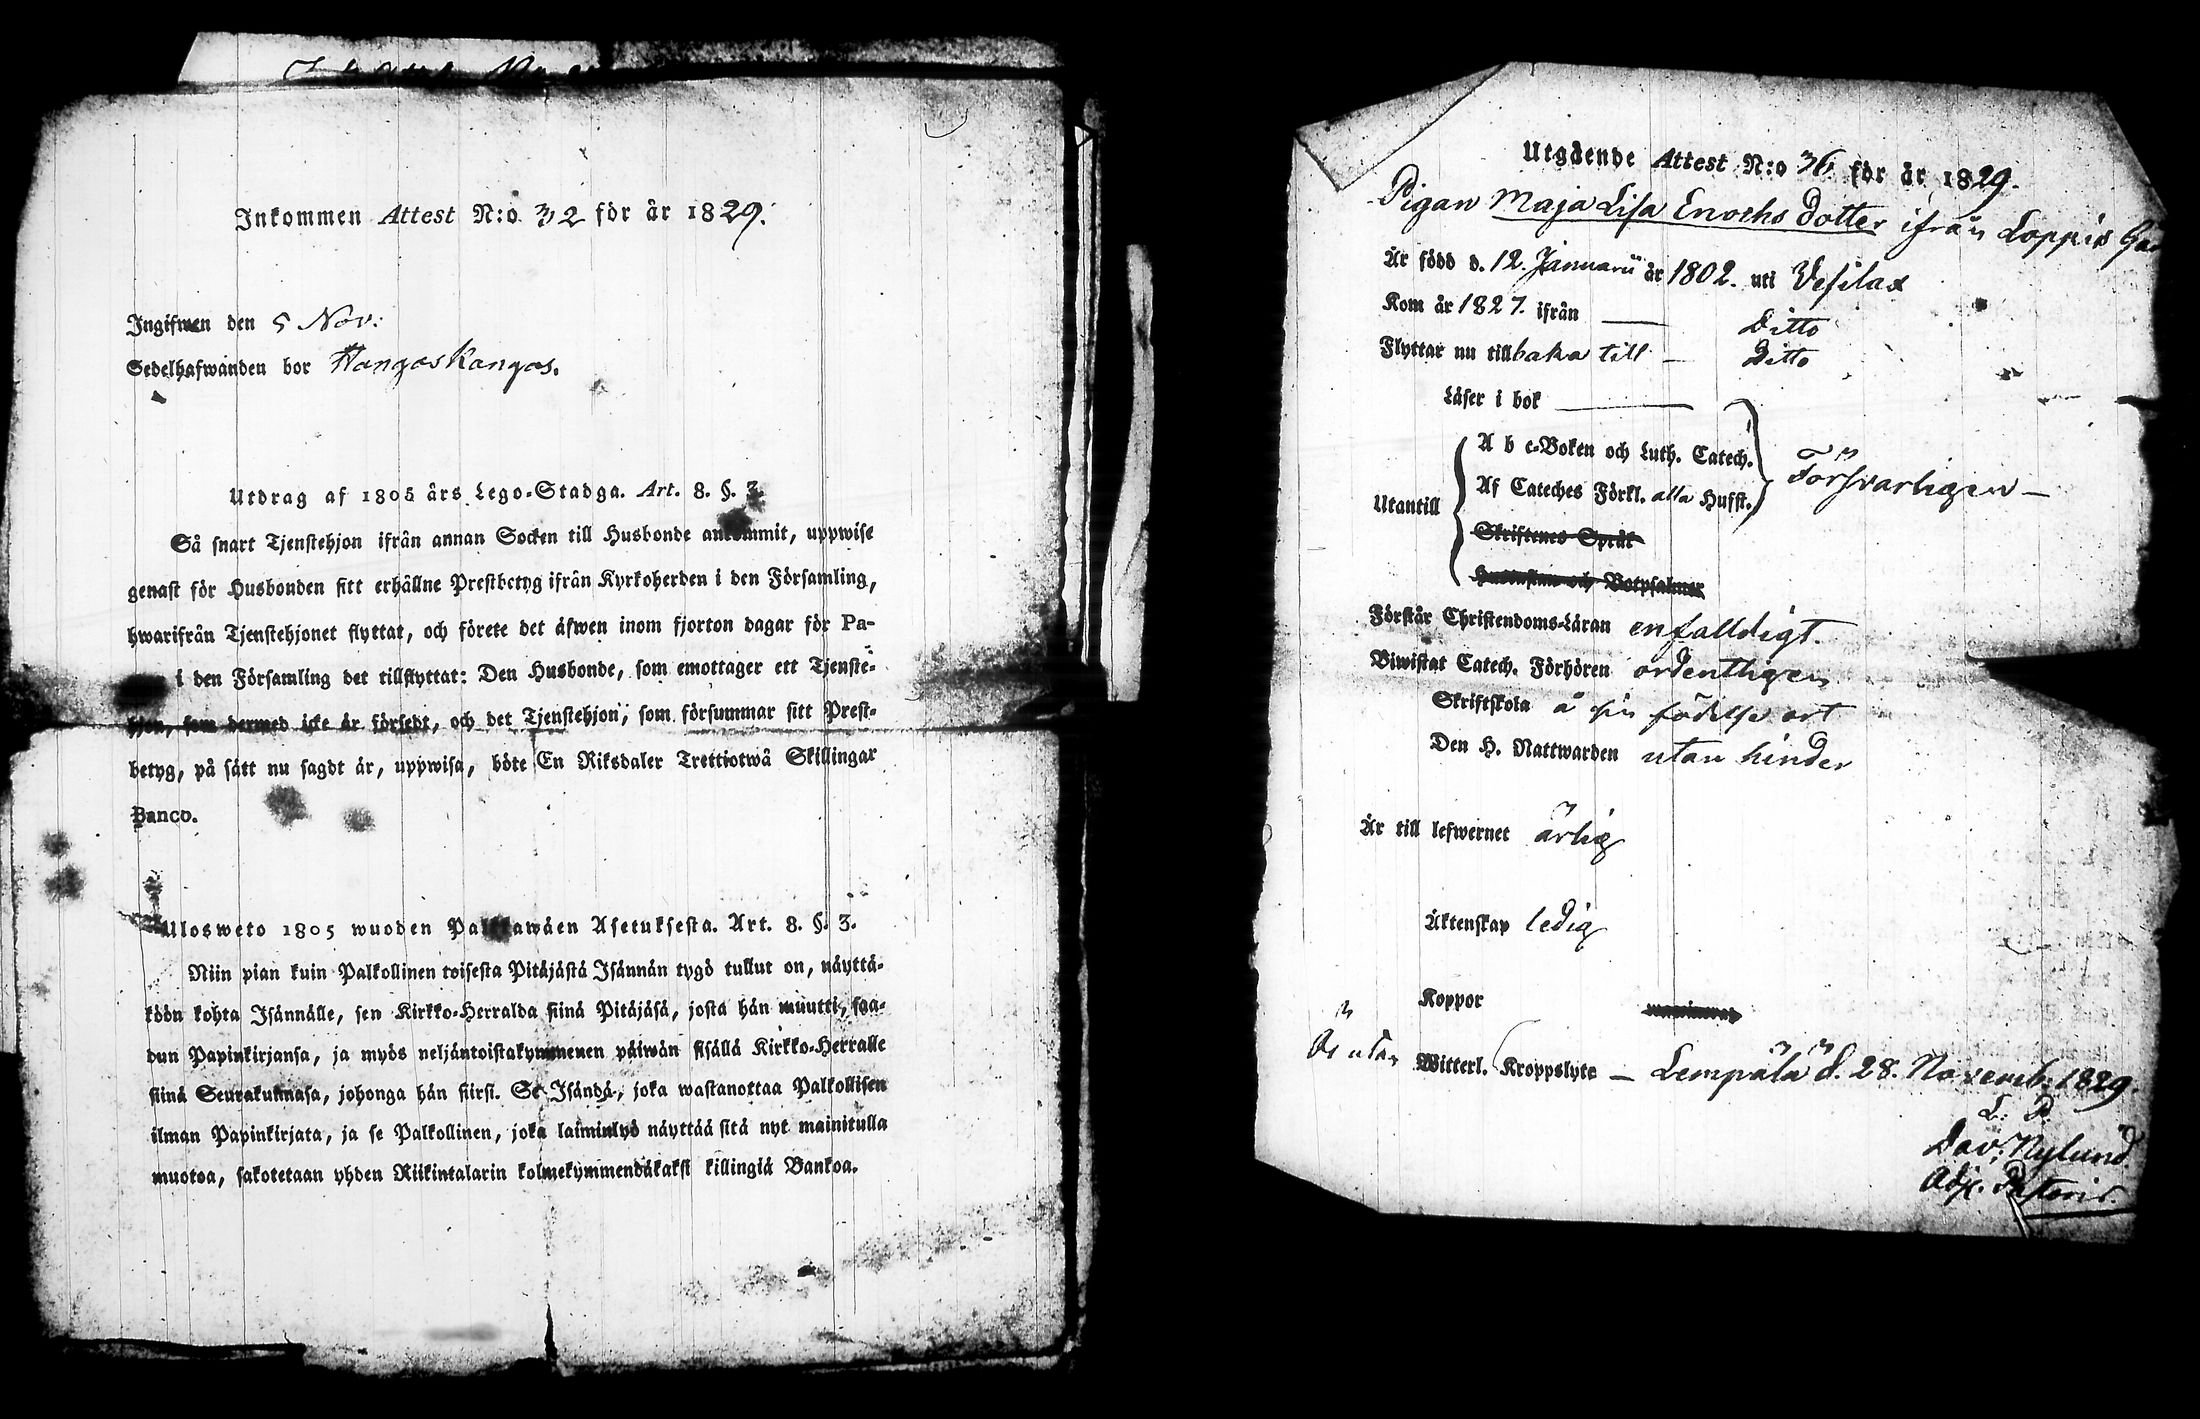 Inkommen Attest N:o 32 för år 1829.
Ingifwen den 5 Nov:
Sedelhafwanden bor Hangaskangas.
Utdrag af 1805 års Lego-Stadga. Art. 8. §. 3.
Så snart Tjenstehjon ifrån annan Socken till Husbonde ankommit, uppwise
genast för Husbonden sitt erhållne Prestbetyg ifrån Kyrkoherden i den Församling,
hwarifrån Tjenstehjonet flyttat, och förete det äfwen inom fjorton dagar för Pa-
i den Församling det tillflyttat: Den Husbonde, som emottager ett Tjenste-
hjon, som dermed icke är försedt, och det Tjenstehjon, som försummar sitt Prest-
betyg, på sätt nu sagdt är, uppwisa, böte En Riksdaler Trettiotwå Skillingar
Banco.
Ulosweto 1805 wuoden Palkkawäen Asetuksesta. Art. 8. §. 3.
Niin pian kuin Palkollinen toisesta Pitäjästä Isännän tygö tullut on, näyttä-
köön kohta Isännälle, sen Kirkko-Herralda siinä Pitäjäsä, josta hän muutti, saa-
dun Papinkirjansa, ja myös neljäntoistakymmenen päiwän sisällä Kirkko-Herralle
siinä Seurakunnasa, johonga hän siirsi. Se Isändä, joka wastanottaa Palkollisen
ilman Papinkirjata, ja se Palkollinen, joka laiminlyö näyttää sitä nyt mainitulla
muotoa, sakotetaan yhden Riikintalarin kolmekymmendäkaksi killingiä Bankoa.
Utgående Attest N:o 36 för år 1829.
Pigan Maja Lisa Enochs Dotter ifrån Loppis
Är född d. 12. Januarii år 1802. uti Vesilax
Kom år 1827. ifrån — Ditto
Flyttar nu tillbaka till — Ditto
Läser i bok —
Utantill
A b c-Boken och Luth. Catech.
Af Cateches Förkl. alla Hufst. Försvarligen —
Skriftenes Språk
Hustaflan och Botpsalmer
Förstår Christendoms-Läran enfalldigt.
Biwistat Catech. Förhören ordentligen
Skriftskola å sin födelse ort
Den H. Nattwarden utan hinder
Är till lefwernet ärlig
Äktenskap ledig
Koppor
Är utan Witterl. Kroppslyte — Lempälä d. 28. Novemb: 1829.
L. P.
Dav: Nylund.
Adj. Pastoris